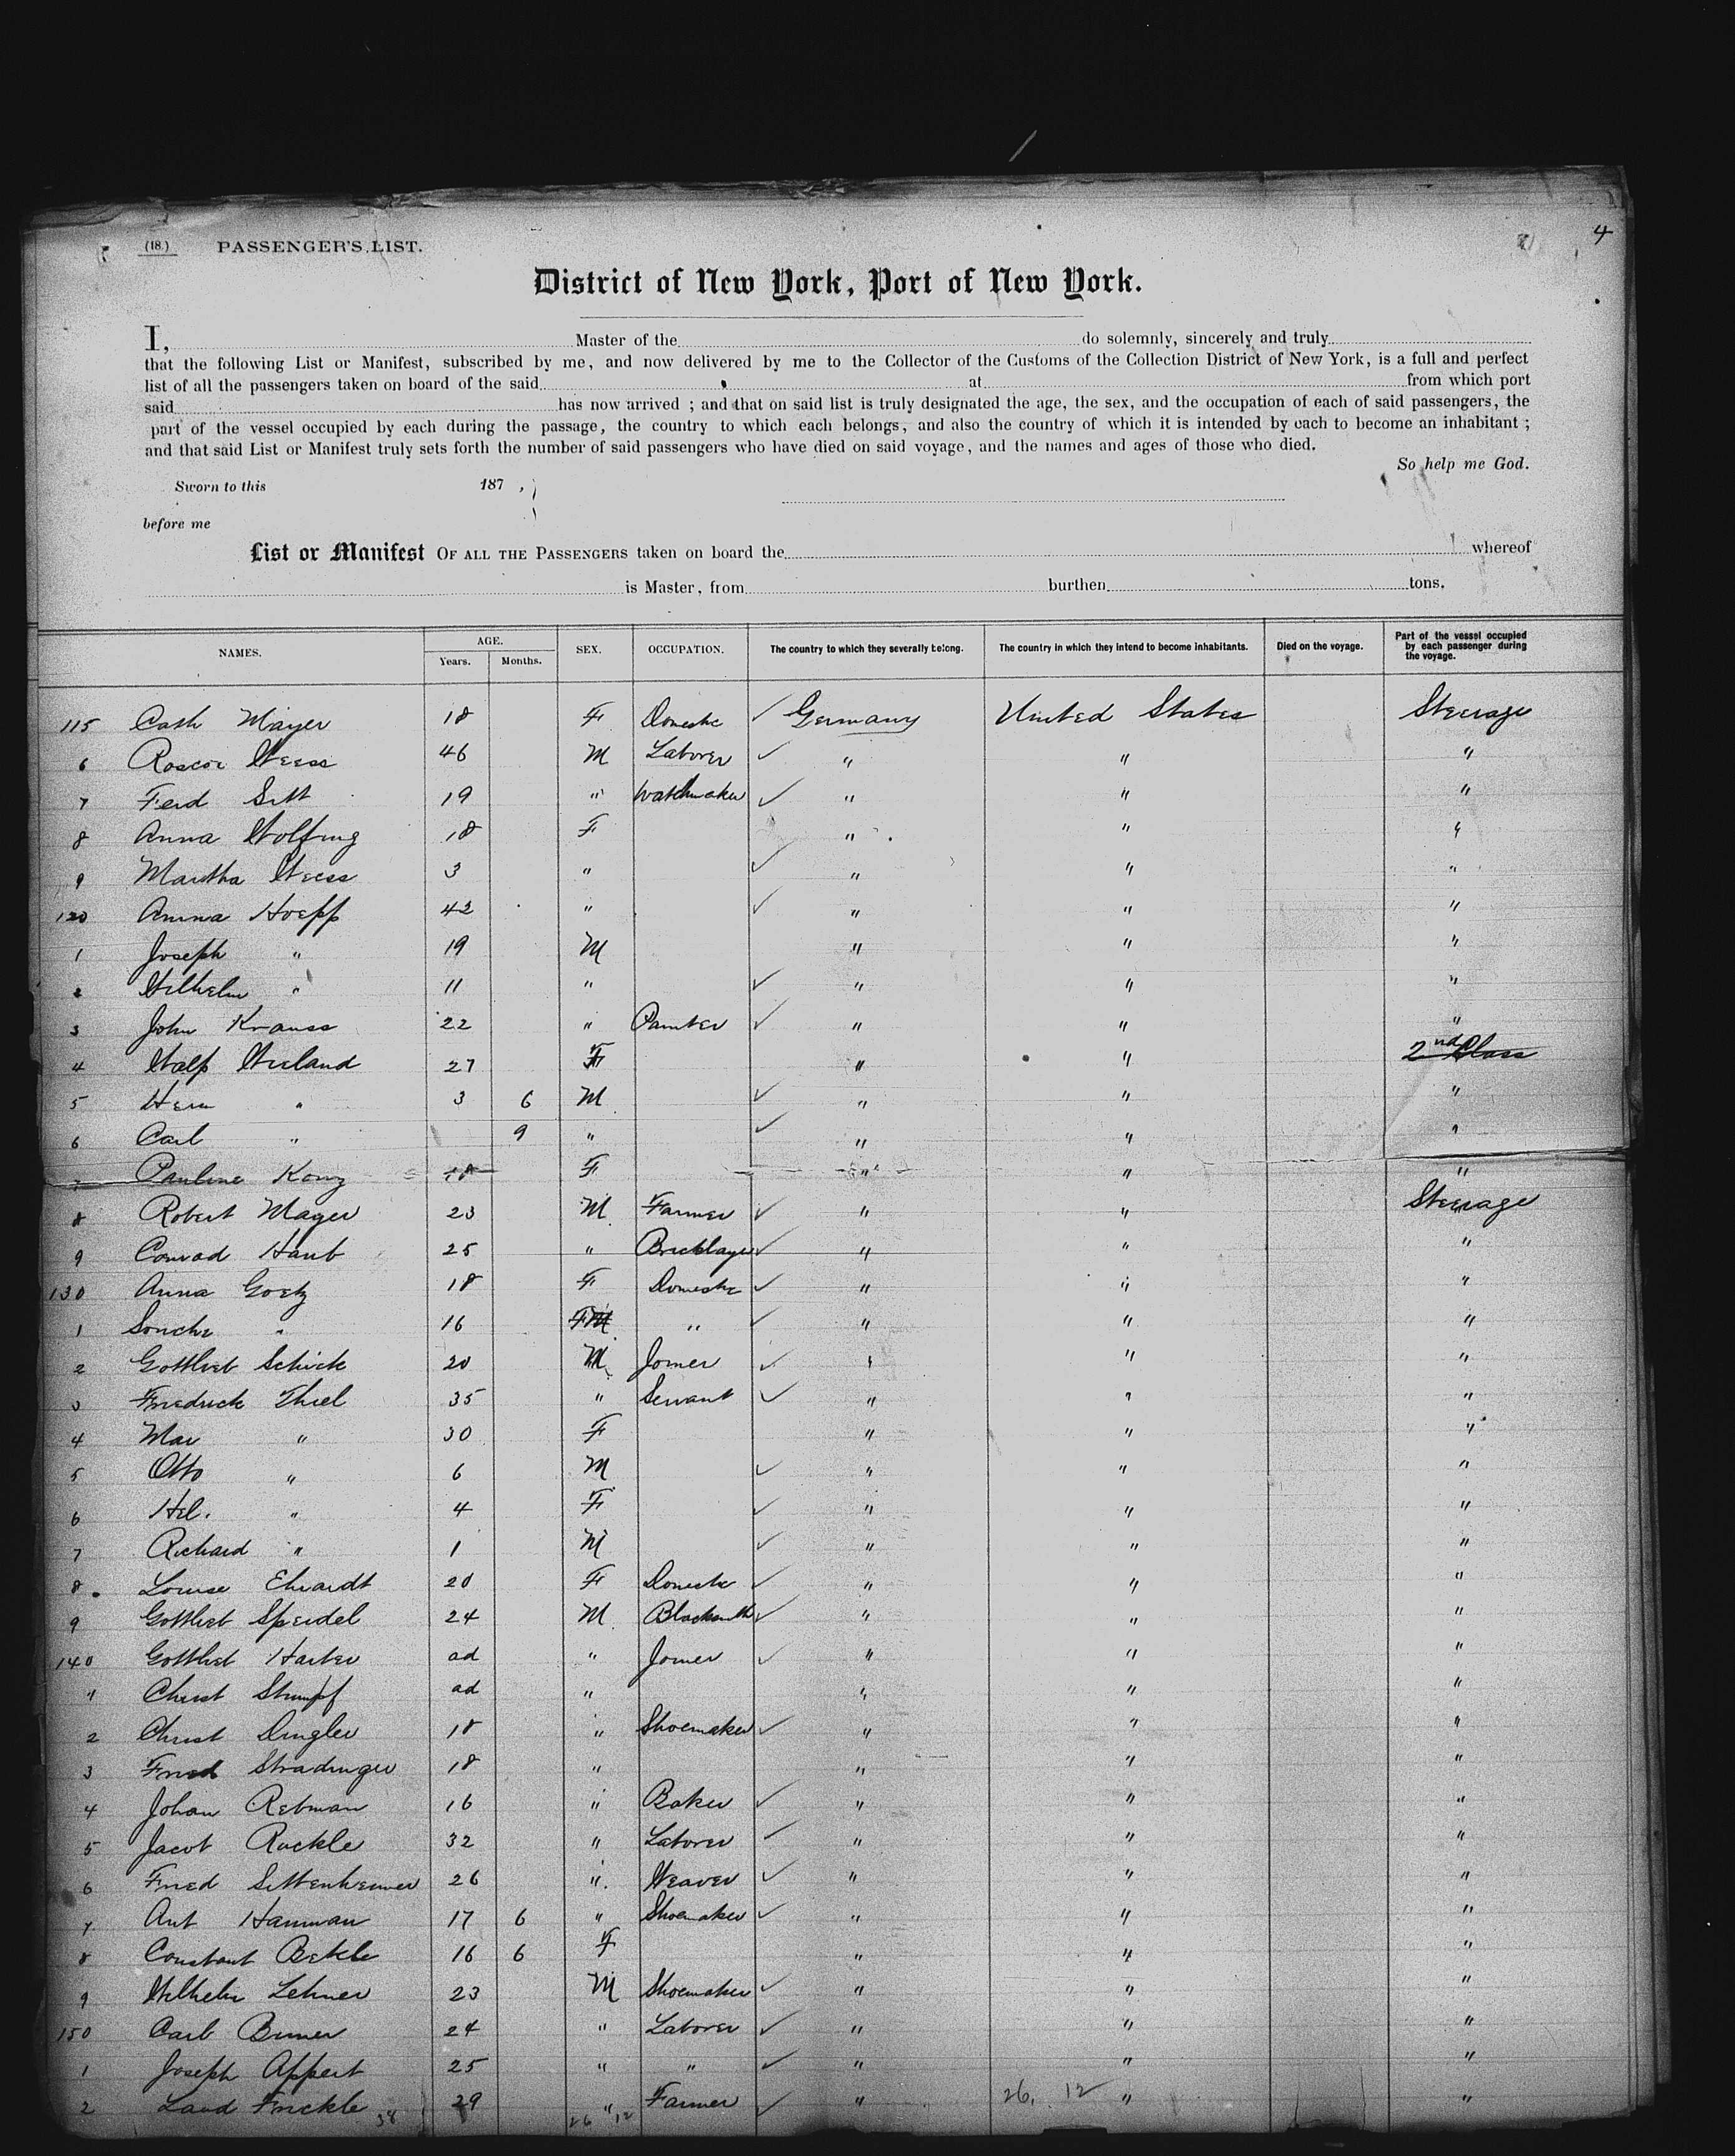 4
(18.) PASSENGER'S LIST.
District of New York, Port of New York.
I, Master of the do solemnly, sincerely and truly
that the following List or Manifest, subscribed by me, and now delivered by me to the Collector of the Customs of the Collection District of New York, is a full and perfect
list of all the passengers taken on board of the said at from which port
said has now arrived ; and that on said list is truly designated the age, the sex, and the occupation of each of said passengers, the
part of the vessel occupied by each during the passage, the country to which each belongs, and also the country of which it is intended by each to become an inhabitant ;
and that said List or Manifest truly sets forth the number of said passengers who have died on said voyage, and the names and ages of those who died.
So help me God.
Sworn to this 187 ,
before me
List or Manifest OF ALL THE PASSENGERS taken on board the whereof
is Master, from burthen tons.
NAMES. AGE. Years. Months. SEX. OCCUPATION. The country to which they severally belong. The country in which they intend to become inhabitants. Died on the voyage. Part of the vessel occupied by each passenger during the voyage.
115 Cath Mayer 18 F Domestic ✓ Germany United States Steerage
6 Roscoe Weiss 46 M Laborer ✓ " " "
7 Ferd Sitt 19 " Watchmaker ✓ " " "
8 Anna Wolfing 18 F " " "
9 Martha Weiss 3 " ✓ " " "
120 Anna Hoepf 42 " ✓ " " "
1 Joseph " 19 M " " "
2 Wilhelm " 11 " ✓ " " "
3 John Krauss 22 " Painter ✓ " " "
4 Walp Wieland 27 F " " 2nd Class
5 Herm " 3 6 M ✓ " " "
6 Carl " 9 " ✓ " " "
7 Pauline Konz 18 F " " "
8 Robert Mayer 23 M Farmer ✓ " " Steerage
9 Conrad Haub 25 " Bricklayer ✓ " " "
130 Anna Goetz 18 F Domestic ✓ " " "
1 " 16 F " ✓ " " "
2 Gottlieb Schick 20 M Joiner ✓ " " "
3 Friedrich Thiel 35 " Servant ✓ " " "
4 Mar " 30 F " " "
5 Otto " 6 M ✓ " " "
6 Hel. " 4 F ✓ " " "
7 Richard " 1 M ✓ " " "
8 Louise Ehrardt 20 F Domestic ✓ " " "
9 Gottlieb Speidel 24 M Blacksmith ✓ " " "
140 Gottlieb Harter ad " Joiner ✓ " " "
" Christ Stumpf ad " " " "
2 Christ Dingler 18 " Shoemaker ✓ " " "
3 Fried Stradinger 18 " " " "
4 Johan Rebman 16 " Baker ✓ " " "
5 Jacob Ruckle 32 " Laborer ✓ " " "
6 Fried Sittenheimer 26 " Weaver ✓ " " "
7 Ant Hamman 17 6 " Shoemaker ✓ " " "
8 Constant Betkle 16 6 F " " "
9 Wilhelm Lehner 23 M Shoemaker ✓ " " "
150 Carl Bruner 24 " Laborer ✓ " " "
1 Joseph Appert 25 " " ✓ " " "
2 Land Frickle 38 29 " Farmer ✓ " " "
26 12 26. 12